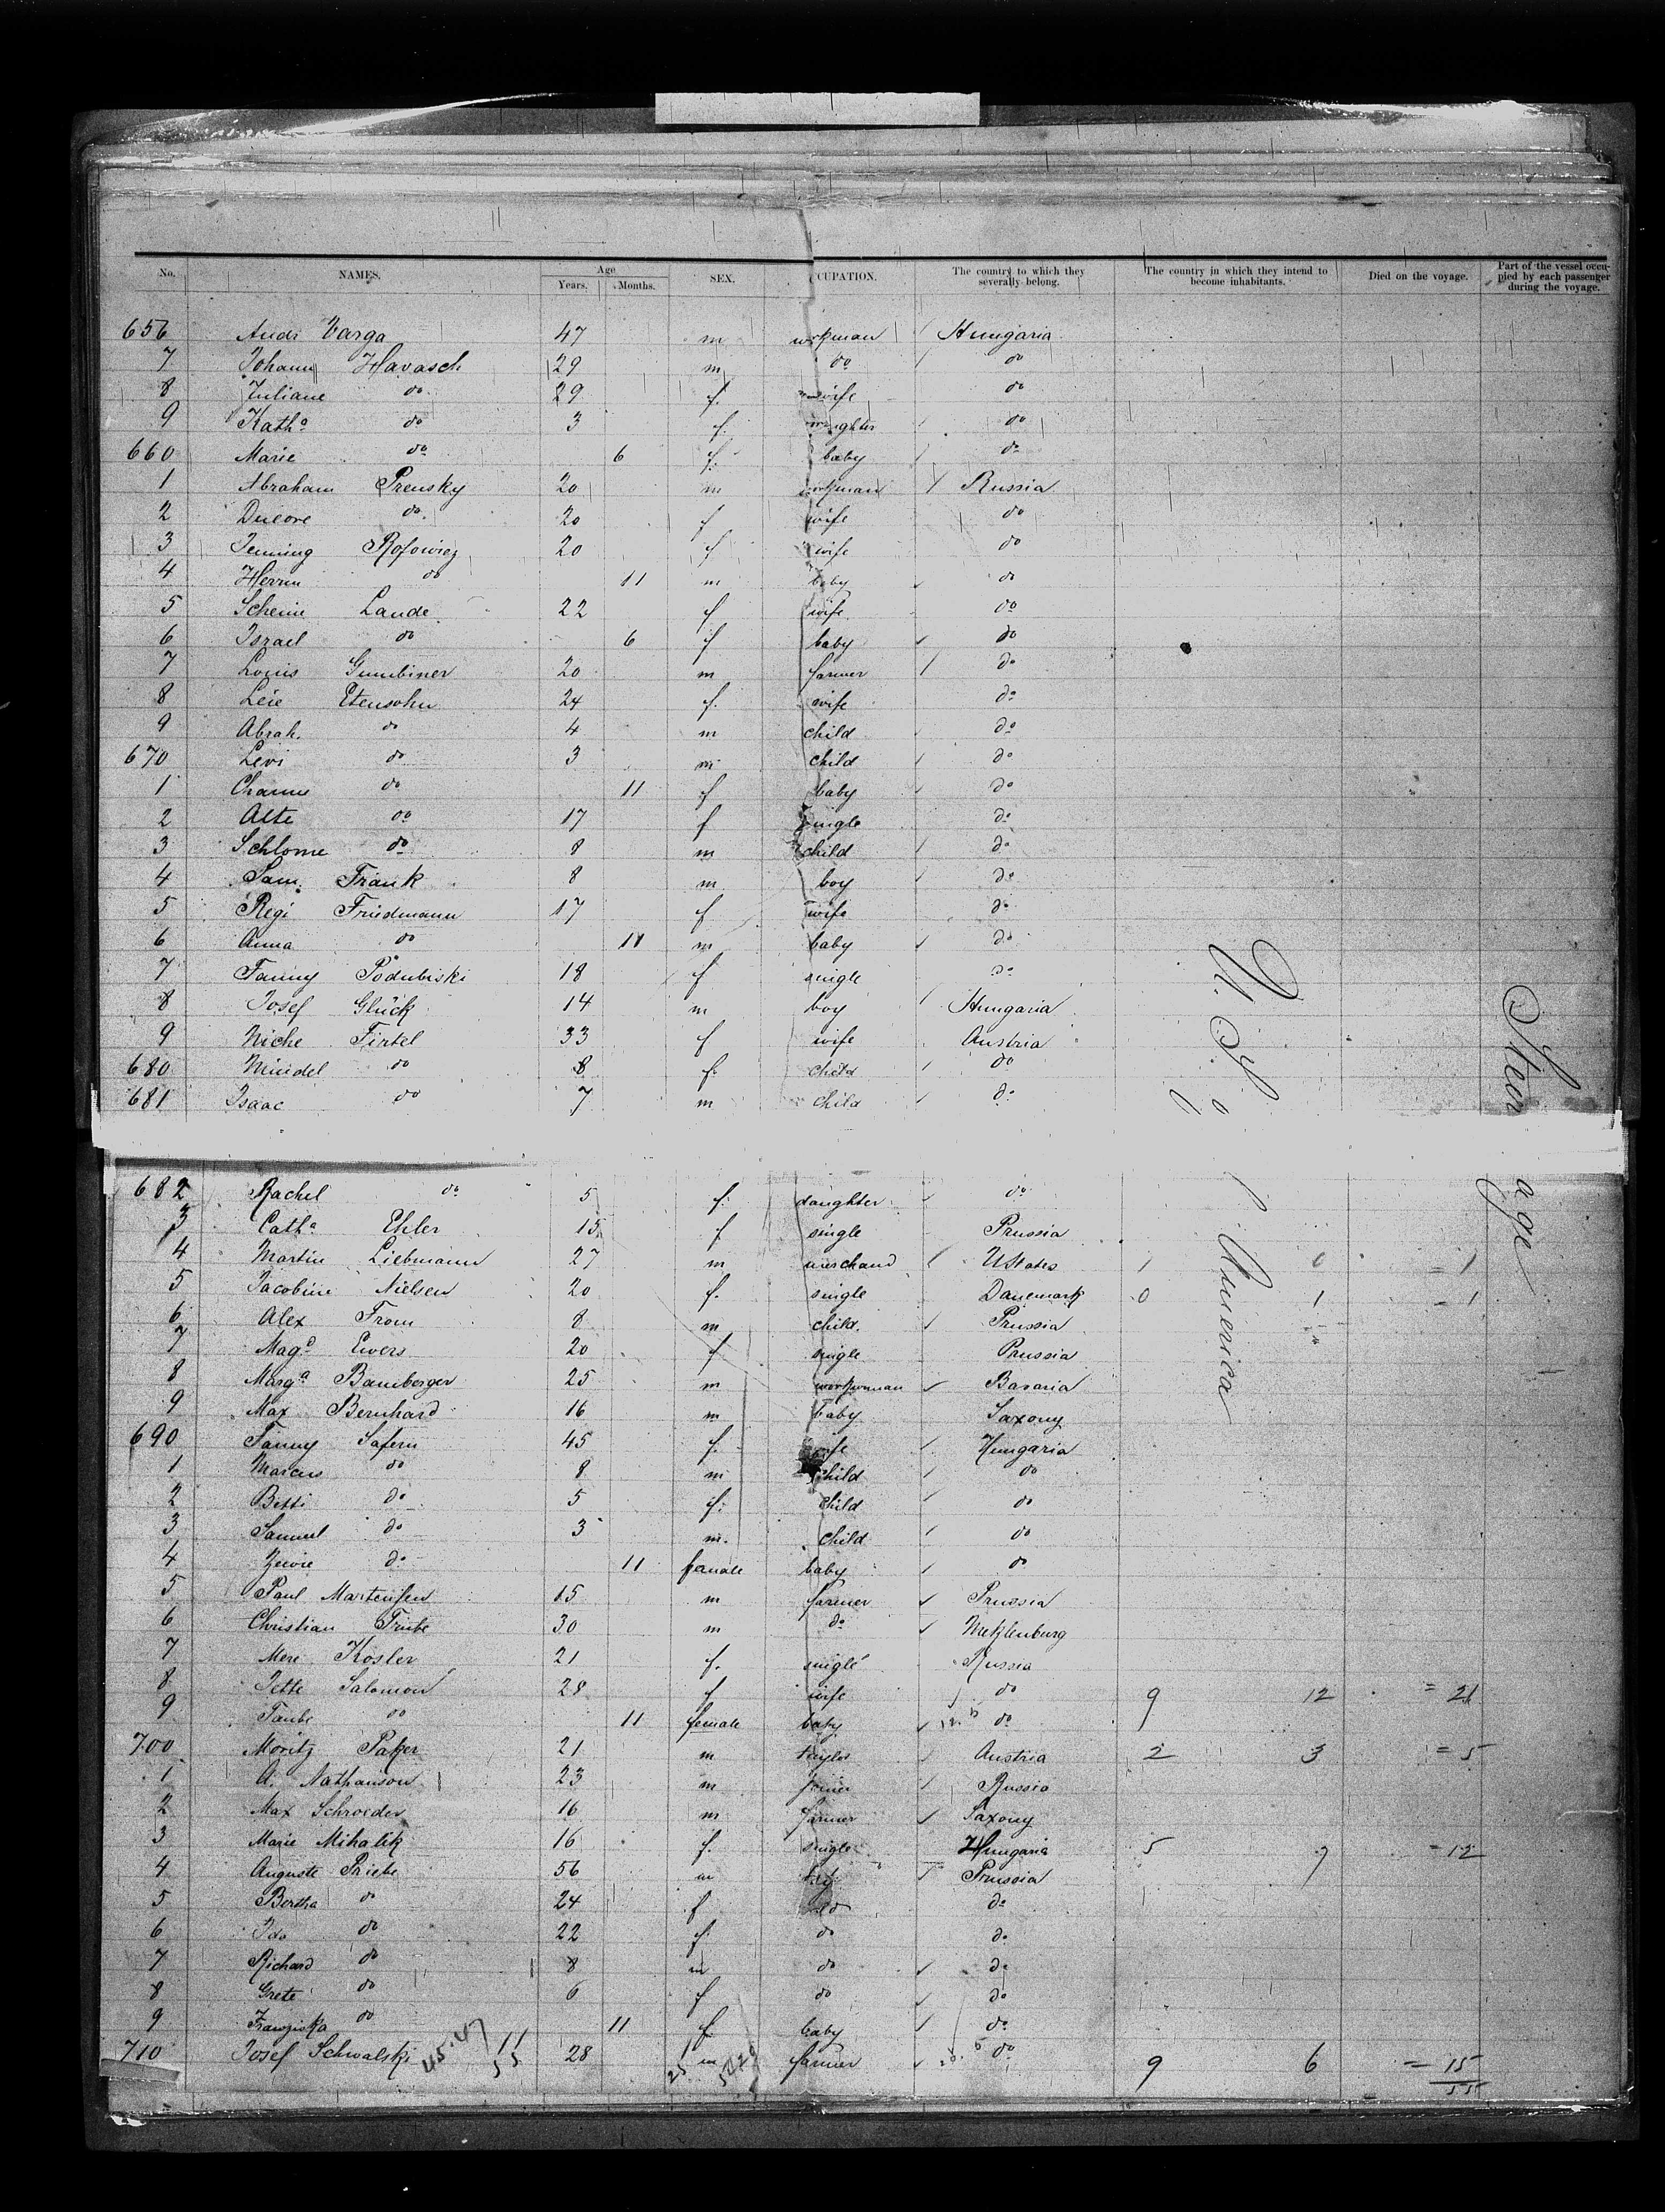 No. NAMES. Age Years. Months. SEX. CUPATION. The country to which they severally belong. The country in which they intend to become inhabitants. Died on the voyage. Part of the vessel occupied by each passenger during the voyage.
656 Andr Varga 47 m workman Hungaria
7 Johann Havasch 29 m do do
8 Juliane do 29 f. wife do
9 Katha do 3 f. do
660 Marie do 6 f. baby do
1 Abraham Prensky 20 m workman Russia
2 do 20 f wife do
3 Jenning Rofowicz 20 f wife do
4 Herrm do 11 m baby do
5 Scheine Lande 22 f wife do
6 Israel do 6 f baby do
7 Louis Gumbiner 20 m farmer do
8 Leie Etensohn 24 f. wife do
9 Abrah. do 4 m child do
670 Levi do 3 m child do
1 do 11 f baby do
2 Alte do 17 f single do
3 Schlome do 8 m child do
4 Sam. Frank 8 m boy do
5 Regi Friedmann 17 f wife do
6 Anna do 11 m baby do
7 Fanny Podubiski 18 f single do
8 Josef Glück 14 m boy Hungaria
9 Niche Firtel 33 f wife Austria
680 Mindel do 8 f. child do
681 Isaac do 7 m child do
682 Rachel do 5 f. daughter do
3 Catha Ehler 15 f single Prussia
4 Martin Liebmann 27 m merchand UStates 1 0 = 1
5 Jacobine Nielsen 20 f. single Danemark 0 1 = 1
6 Alex From 8 m child. Prussia
7 Magd Ewers 20 f single Prussia
8 Marga Bamberger 25 m workwman Bavaria
9 Max Bernhard 16 m baby Saxony
690 Fanny Safern 45 f. wife Hungaria
1 Marcus do 8 m child do
2 Betti do 5 f. child do
3 Samuel do 3 m. child do
4 do 11 female baby do
5 Paul Martensen 15 m farmer Prussia
6 Christian Trube 30 m do Meklenburg
7 Mere Kosler 21 f. single Russia
8 Jette Salomon 28 f wife do 9 12 = 21
9 Taube do 11 female baby do
700 Moritz Paker 21 m taylor Austria 2 3 = 5
1 A. Nathanson 23 m joiner Russia
2 Max Schroeder 16 m farmer Saxony
3 Marie Mihalik 16 f. single Hungaria 5 7 = 12
4 Auguste Priebe 56 m Prussia
5 Bertha do 24 f do do
6 Ida do 22 f do do
7 Richard do 8 m do do
8 Grete do 6 f do do
9 Franziska do 11 f baby do
710 Josef Schwalski 28 m farmer do 9 6 = 15
55
U. St. of America
Steerage